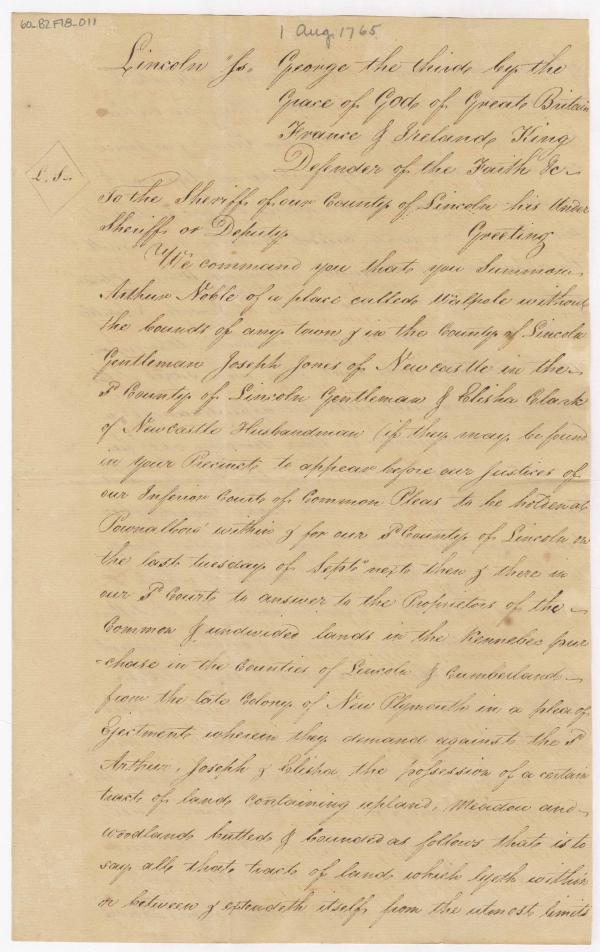 60_B2F18_011
1 Aug. 1765
Lincoln Ss. George the third by the
Grace of God of Great Britain
France & Ireland King
Defender of the Faith &c
L. S.
To the Sheriff of our County of Lincoln his Under
Sheriff or Deputy Greeting
We command you that you Summon
Arthur Noble of a place called Walpole without
the bounds of any town & in the County of Lincoln
Gentleman Joseph Jones of Newcastle in the
sd County of Lincoln Gentleman & Elisha Clark
of Newcastle Husbandman (if they may be found
in your Precinct to appear before our Justices of
our Inferior Court of Common Pleas to be holden at
Pownalboro' within & for our sd County of Lincoln on
the last tuesday of Septr next then & there in
our sd Court to answer to the Proprietors of the
Common & undivided lands in the Kennebec pur
-chase in the Counties of Lincoln & Cumberland
from the late Colony of New Plymouth in a plea of
Ejectment wherein they demand against the sd
Arthur, Joseph & Elisha the possession of a certain
tract of land containing upland, Meadow and
woodland butted & bounded as follows that is to
say all that tract of land which lyeth within
or between & extendeth itself from the utmost limits